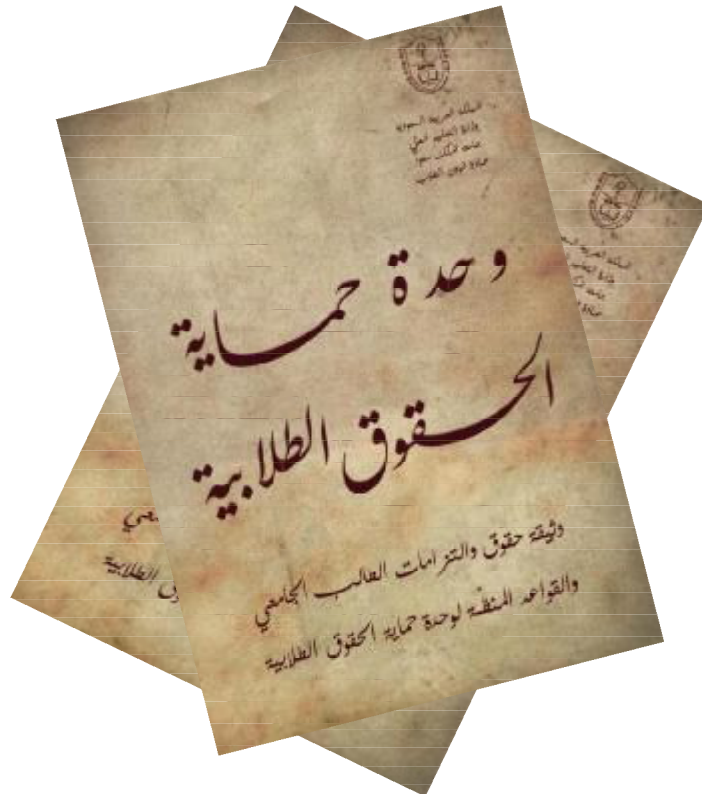 المملكة العربية السعودية
وزارة التعليم العالي
جامعة الملك سعود
عمادة شؤون الطلاب
وحدة حماية
الحقوق الطلابية
وثيقة حقوق والتزامات الطالب الجامعي
والقواعد المنظمة لوحدة حماية الحقوق الطلابية
المملكة العربية
وزارة التعليم
الطلابية